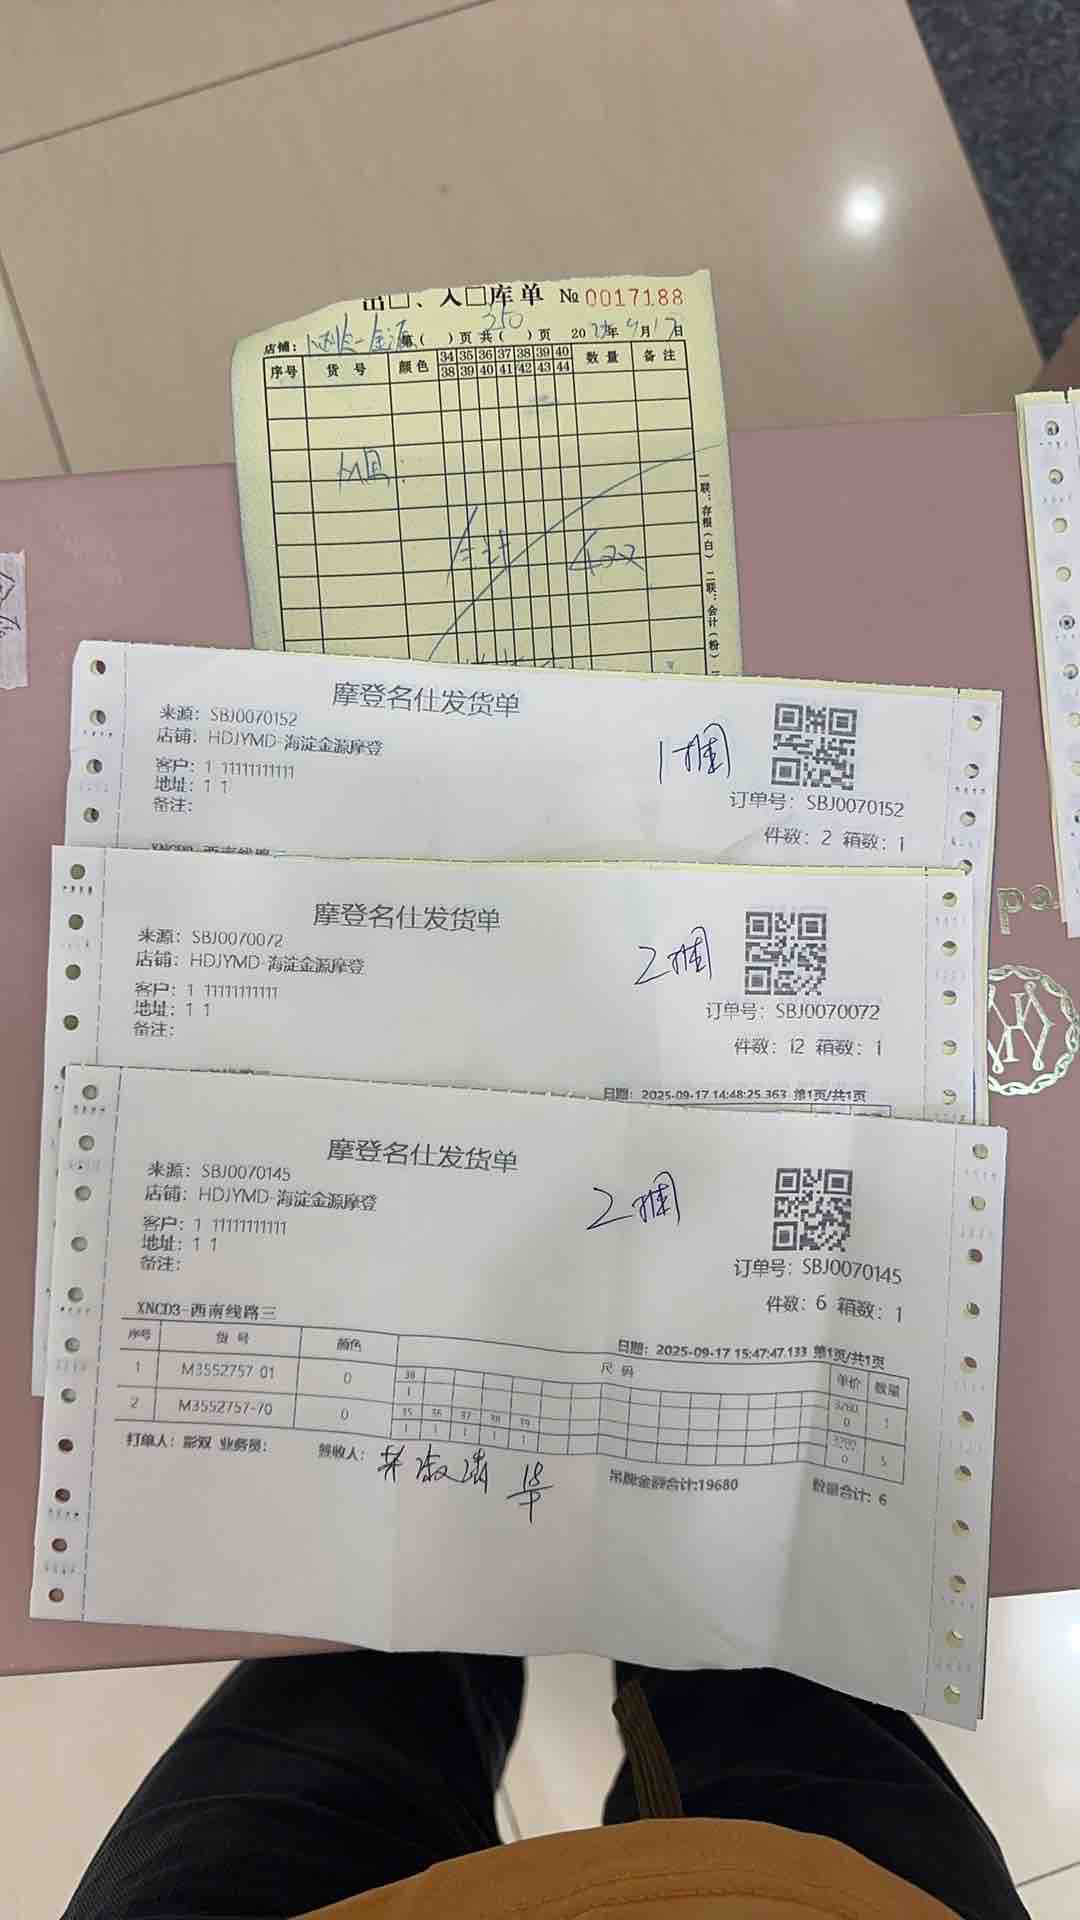 出□、入□库单 № 0017188
250
店铺： 第( )页 共( )页 20 年9月17日
序号 货号 颜色 34 35 36 37 38 39 40 数量 备注
38 39 40 41 42 43 44
合计 4双
一联：存根（白） 二联：会计（粉）
摩登名仕发货单
来源：SBJ0070152
店铺：HDJYMD-海淀金源摩登
客户：1 11111111111
地址：1 1
备注：
1捆
订单号：SBJ0070152
件数：2 箱数：1
摩登名仕发货单
来源：SBJ0070072
店铺：HDJYMD-海淀金源摩登
客户：1 11111111111
地址：1 1
备注：
2捆
订单号：SBJ0070072
件数：12 箱数：1
日期：2025-09-17 14:48:25.363 第1页/共1页
摩登名仕发货单
来源：SBJ0070145
店铺：HDJYMD-海淀金源摩登
客户：1 11111111111
地址：1 1
备注：
2捆
订单号：SBJ0070145
件数：6 箱数：1
XNCD3-西南线路三
日期：2025-09-17 15:47:47.133 第1页/共1页
序号 货号 颜色 尺码 单价 数量
1 M3552757-01 0 38 3280 1
1 0
2 M3552757-70 0 35 36 37 38 39 3280 5
1 1 1 1 1 0
打单人：彭双 业务员： 签收人： 淑清 18
吊牌金额合计:19680 数量合计：6